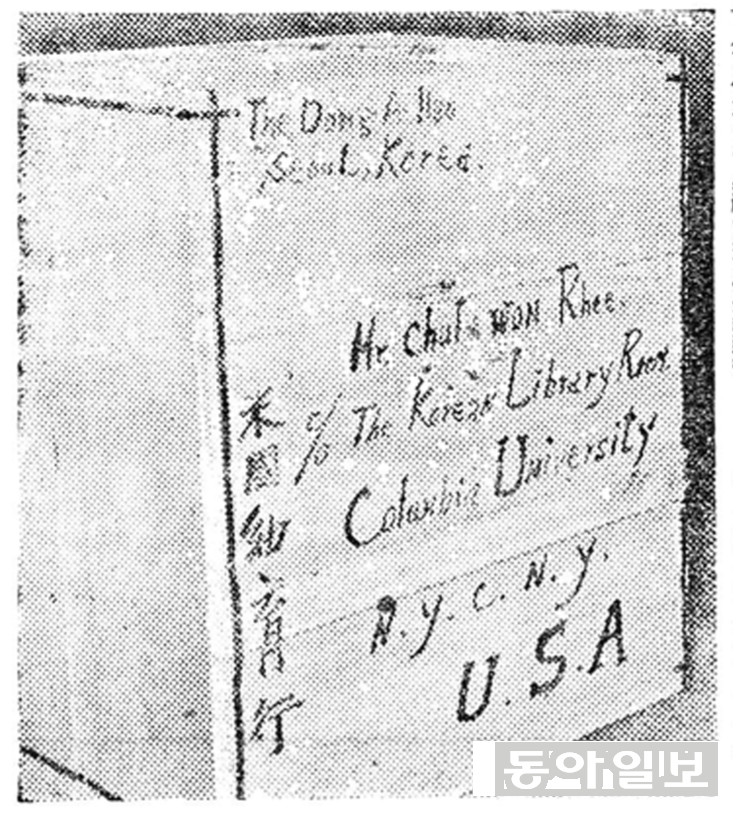 The Dong A Ilbo
Seoul, Korea.
Mr. Chul Won Rhee.
c/o The Korean Library Room.
Columbia University
N.Y.C. N.Y.
U.S.A
米國紐育行
동아일보